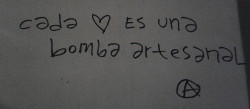 cada ♡ ES una
bomba artesanal
Ⓐ